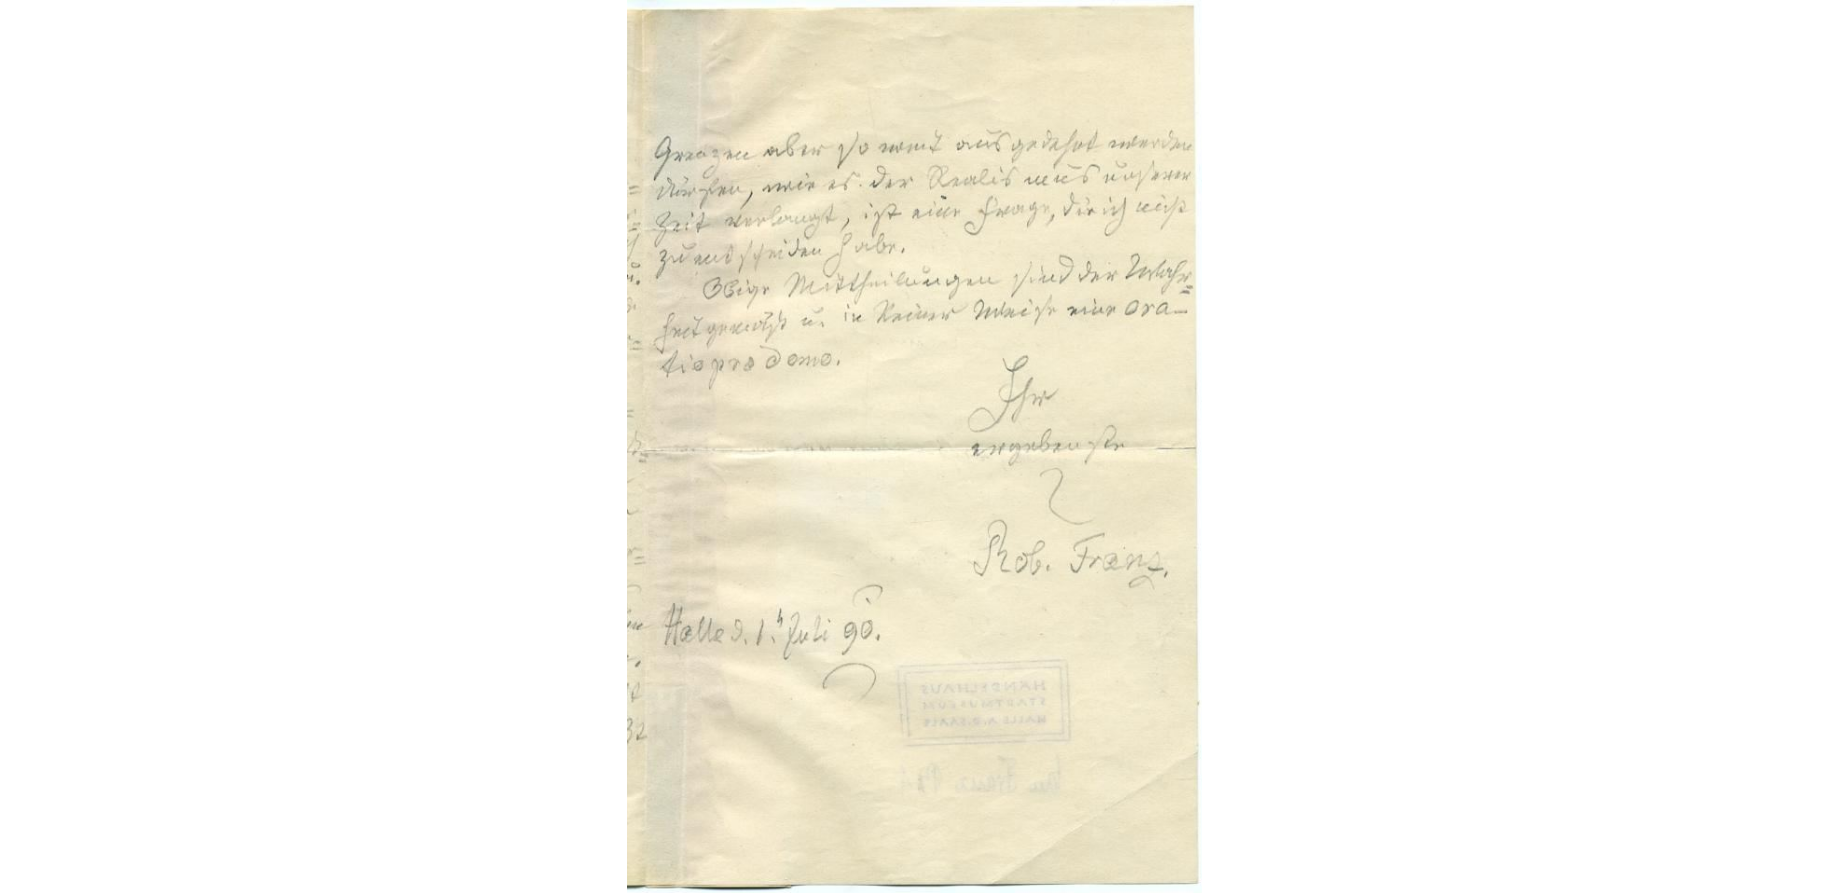 Grenzen aber so weit ausgedehnt werden
dürfen, wie es der Realismus unserer
Zeit verlangt, ist eine Frage, die ich nicht
zu entscheiden habe.
Obige Mittheilungen sind der Wahr=
heit gemäß u. in keiner Weise eine ora-
tio pro domo.
Ihr
ergebenster
Rob. Franz.
Halle d. 1. Juli 90.
HÄNDELHAUS
STADTMUSEUM
HALLE A.D. SAALE